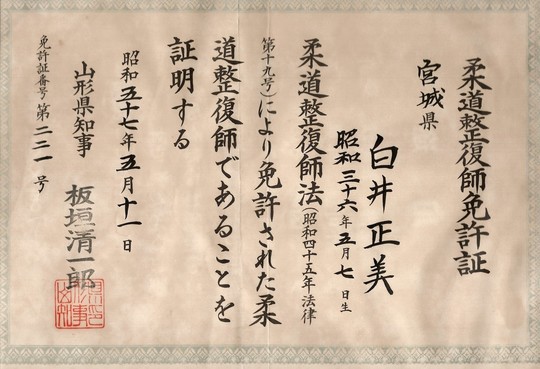 柔道整復師免許証
宮城県
白井正美
昭和三十六年五月七日生
柔道整復師法(昭和四十五年法律
第十九号)により免許された柔
道整復師であることを
証明する
昭和五十七年五月十一日
山形県知事 板垣清一郎
免許証番号第二二一号